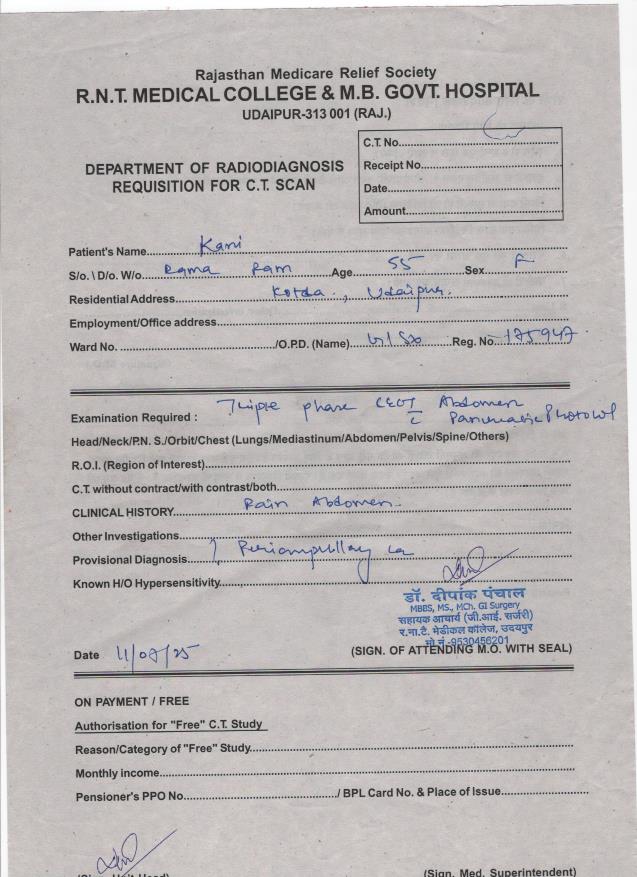 Rajasthan Medicare Relief Society
R.N.T. MEDICAL COLLEGE & M.B. GOVT. HOSPITAL
UDAIPUR-313 001 (RAJ.)
C.T. No.
DEPARTMENT OF RADIODIAGNOSIS
REQUISITION FOR C.T. SCAN
Receipt No.
Date
Amount
Patient's Name Kani
S/o. \ D/o. W/o. Rama Ram Age 55 Sex F
Residential Address Kotda, Udaipur.
Employment/Office address
Ward No. /O.P.D. (Name) Reg. No. 175947
Examination Required : Triple phase CECT Abdomen
c Pancreatic Protocol
Head/Neck/P.N. S./Orbit/Chest (Lungs/Mediastinum/Abdomen/Pelvis/Spine/Others)
R.O.I. (Region of Interest)
C.T. without contract/with contrast/both
CLINICAL HISTORY Pain Abdomen
Other Investigations
Provisional Diagnosis ? Periampullary Ca
Known H/O Hypersensitivity
डॉ. दीपक पंचाल
MBBS, MS., MCh. GI Surgery
सहायक आचार्य (जी.आई. सर्जरी)
र.ना.टै. मेडीकल कॉलेज, उदयपुर
मो.नं.-9530456201
Date 11/07/25 (SIGN. OF ATTENDING M.O. WITH SEAL)
ON PAYMENT / FREE
Authorisation for "Free" C.T. Study
Reason/Category of "Free" Study
Monthly income
Pensioner's PPO No. / BPL Card No. & Place of Issue
(Sign. Med. Superintendent)